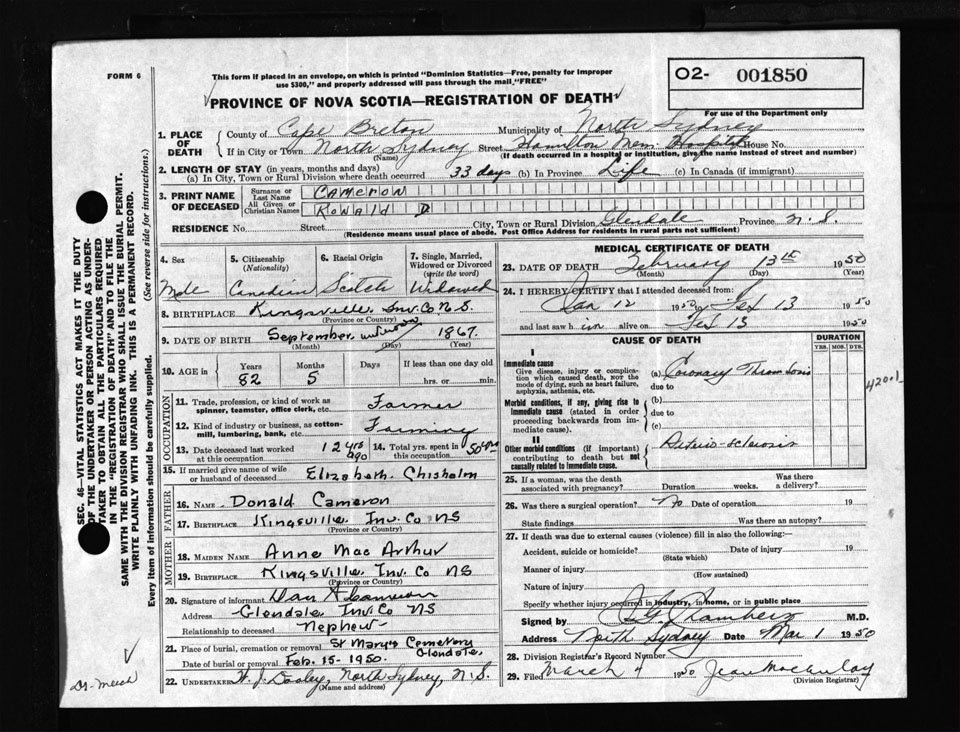 FORM 6
This form if placed in an envelope, on which is printed "Dominion Statistics—Free, penalty for improper
use $300," and properly addressed will pass through the mail, "FREE"
O2- 001850
For use of the Department only
PROVINCE OF NOVA SCOTIA—REGISTRATION OF DEATH
1. PLACE OF DEATH
County of Cape Breton Municipality of North Sydney
If in City or Town North Sydney Street Hamilton Mem. Hospital House No.
(Name) (If death occurred in a hospital or institution, give the name instead of street and number)
2. LENGTH OF STAY (in years, months and days)
(a) In City, Town or Rural Division where death occurred 33 days (b) In Province Life (c) In Canada (if immigrant)
3. PRINT NAME OF DECEASED
Surname or Last Name CAMERON
All Given or Christian Names RONALD D
RESIDENCE No. Street City, Town or Rural Division Glendale Province N.S.
(Residence means usual place of abode. Post Office Address for residents in rural parts not sufficient)
4. Sex Male
5. Citizenship (Nationality) Canadian
6. Racial Origin Scotch
7. Single, Married, Widowed or Divorced (write the word) Widowed
8. BIRTHPLACE Kingsville Inv. Co. N.S.
(Province or Country)
9. DATE OF BIRTH September 1867.
(Month) (Day) (Year)
10. AGE in Years 82 Months 5 Days If less than one day old hrs. or min.
OCCUPATION
11. Trade, profession or kind of work as spinner, teamster, office clerk, etc. Farmer
12. Kind of industry or business, as cotton-mill, lumbering, bank, etc. Farming
13. Date deceased last worked at this occupation 12 yrs ago
14. Total yrs. spent in this occupation 50 yrs
15. If married give name of wife or husband of deceased Elizabeth Chisholm
FATHER
16. NAME Donald Cameron
17. BIRTHPLACE Kingsville Inv. Co NS
(Province or Country)
MOTHER
18. MAIDEN NAME Anne Mac Arthur
19. BIRTHPLACE Kingsville Inv. Co NS
(Province or Country)
20. Signature of informant Dan A Cameron
Address Glendale Inv. Co NS
Relationship to deceased Nephew
21. Place of burial, cremation or removal St Mary's Cemetery Glendale.
Date of burial or removal Feb. 15-1950.
22. UNDERTAKER W. J. Dooley, North Sydney, N.S.
(Name and address)
MEDICAL CERTIFICATE OF DEATH
23. DATE OF DEATH February 13th 1950
(Month) (Day) (Year)
24. I HEREBY CERTIFY that I attended deceased from:
Jan 12 1950 to Feb 13 1950
and last saw him alive on Feb 13 1950
CAUSE OF DEATH
DURATION
YRS. MOS. DYS.
I
Immediate cause
Give disease, injury or complication which caused death, NOT the mode of dying, such as heart failure, asphyxia, asthenia, etc.
(a) Coronary Thrombosis
due to
Morbid conditions, if any, giving rise to immediate cause (stated in order proceeding backwards from immediate cause).
(b)
due to
(c)
II
Other morbid conditions (if important) contributing to death but not causally related to immediate cause.
Arterio-sclerosis
420.1
25. If a woman, was the death associated with pregnancy? Duration weeks. Was there a delivery?
26. Was there a surgical operation? No Date of operation 19
State findings Was there an autopsy?
27. If death was due to external causes (violence) fill in also the following:—
Accident, suicide or homicide? Date of injury 19
(State which)
Manner of injury
(How sustained)
Nature of injury
Specify whether injury occurred in industry, in home, or in public place
Signed by M.D.
Address North Sydney Date Mar 1 1950
28. Division Registrar's Record Number
29. Filed March 4 1950 Jean Macaulay
(Division Registrar)
SEC. 46—VITAL STATISTICS ACT MAKES IT THE DUTY
OF THE UNDERTAKER OR PERSON ACTING AS UNDER-
TAKER TO OBTAIN ALL THE PARTICULARS REQUIRED
IN THE "REGISTRATION OF DEATH" AND TO FILE THE
SAME WITH THE DIVISION REGISTRAR WHO SHALL ISSUE THE BURIAL PERMIT.
WRITE PLAINLY WITH UNFADING INK. THIS IS A PERMANENT RECORD.
Every item of information should be carefully supplied. (See reverse side for instructions.)